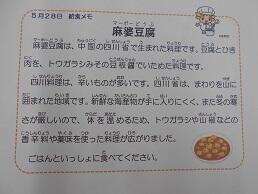 5月28日 給食メモ
麻婆豆腐
麻婆豆腐は、中国の四川省で生まれた料理です。豆腐とひき
肉を、トウガラシみその豆板醤でいためた料理です。
四川料理は、辛いものが多いです。四川省は、まわりを山に
囲まれた地域です。新鮮な海産物が手に入りにくく、また冬の寒
さが厳しいので、体を温めるため、トウガラシや山椒などの
香辛料や薬味を使った料理が広がりました。
ごはんといっしょに食べてください。